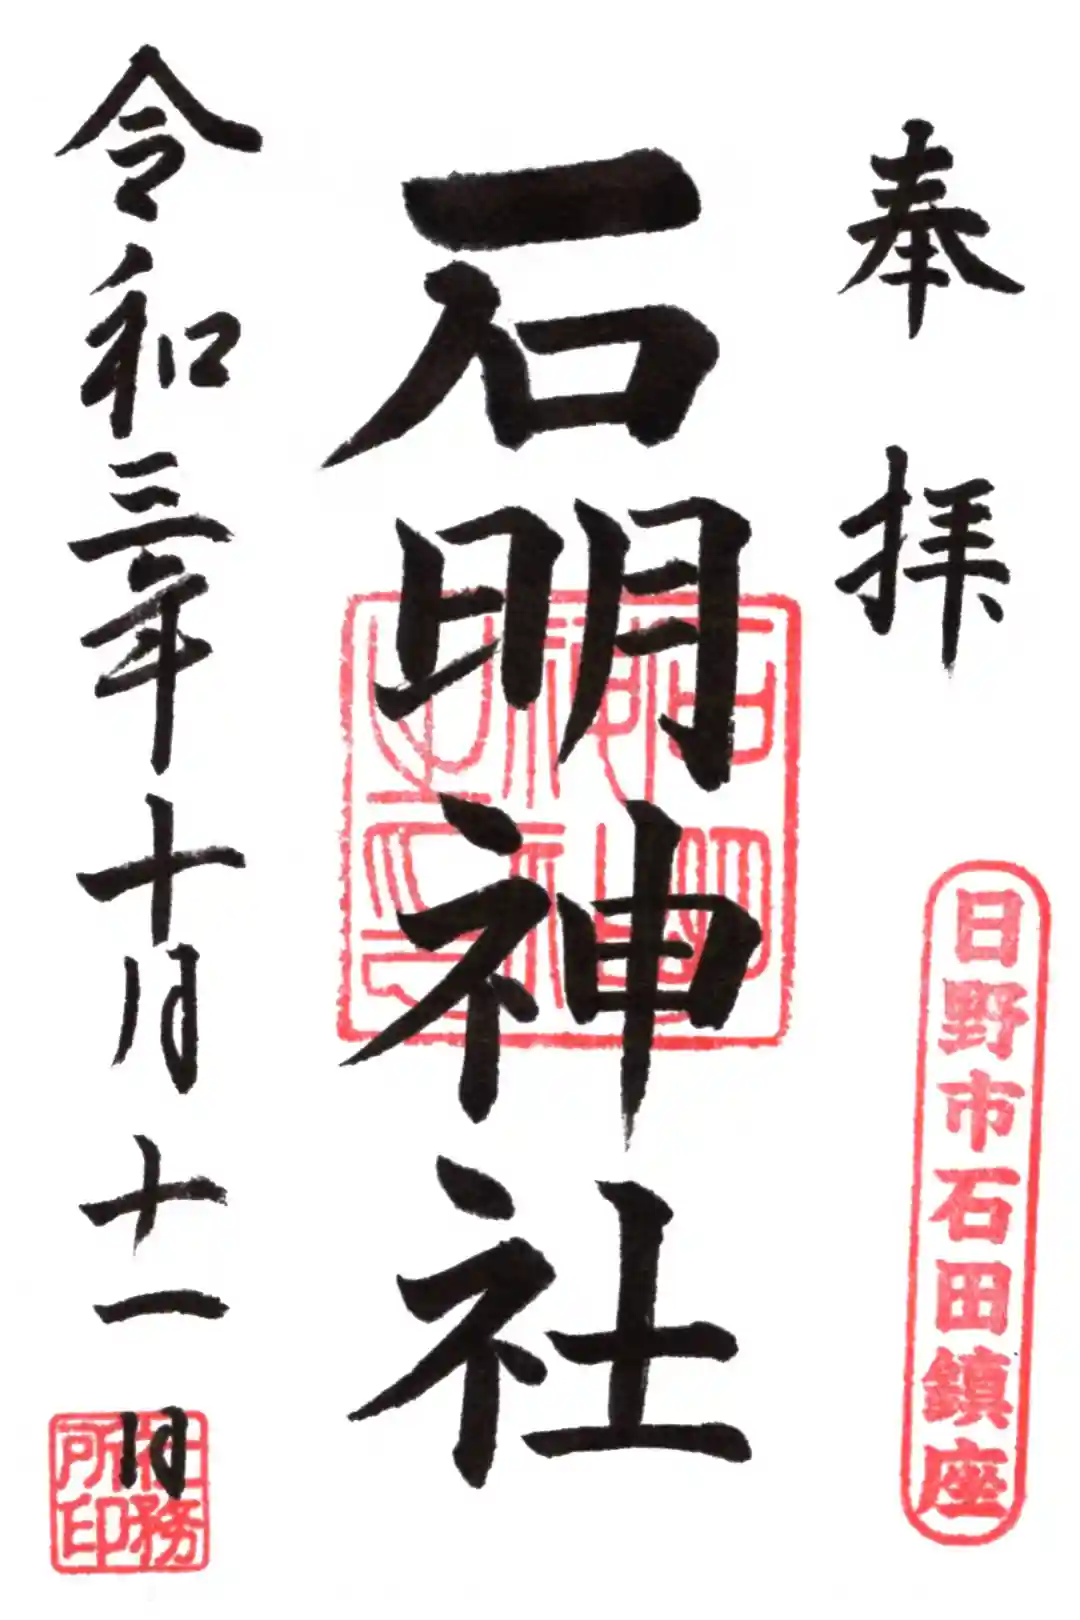 奉拝
日野市石田鎮座
石明神社
令和三年十月十一日
社務所印